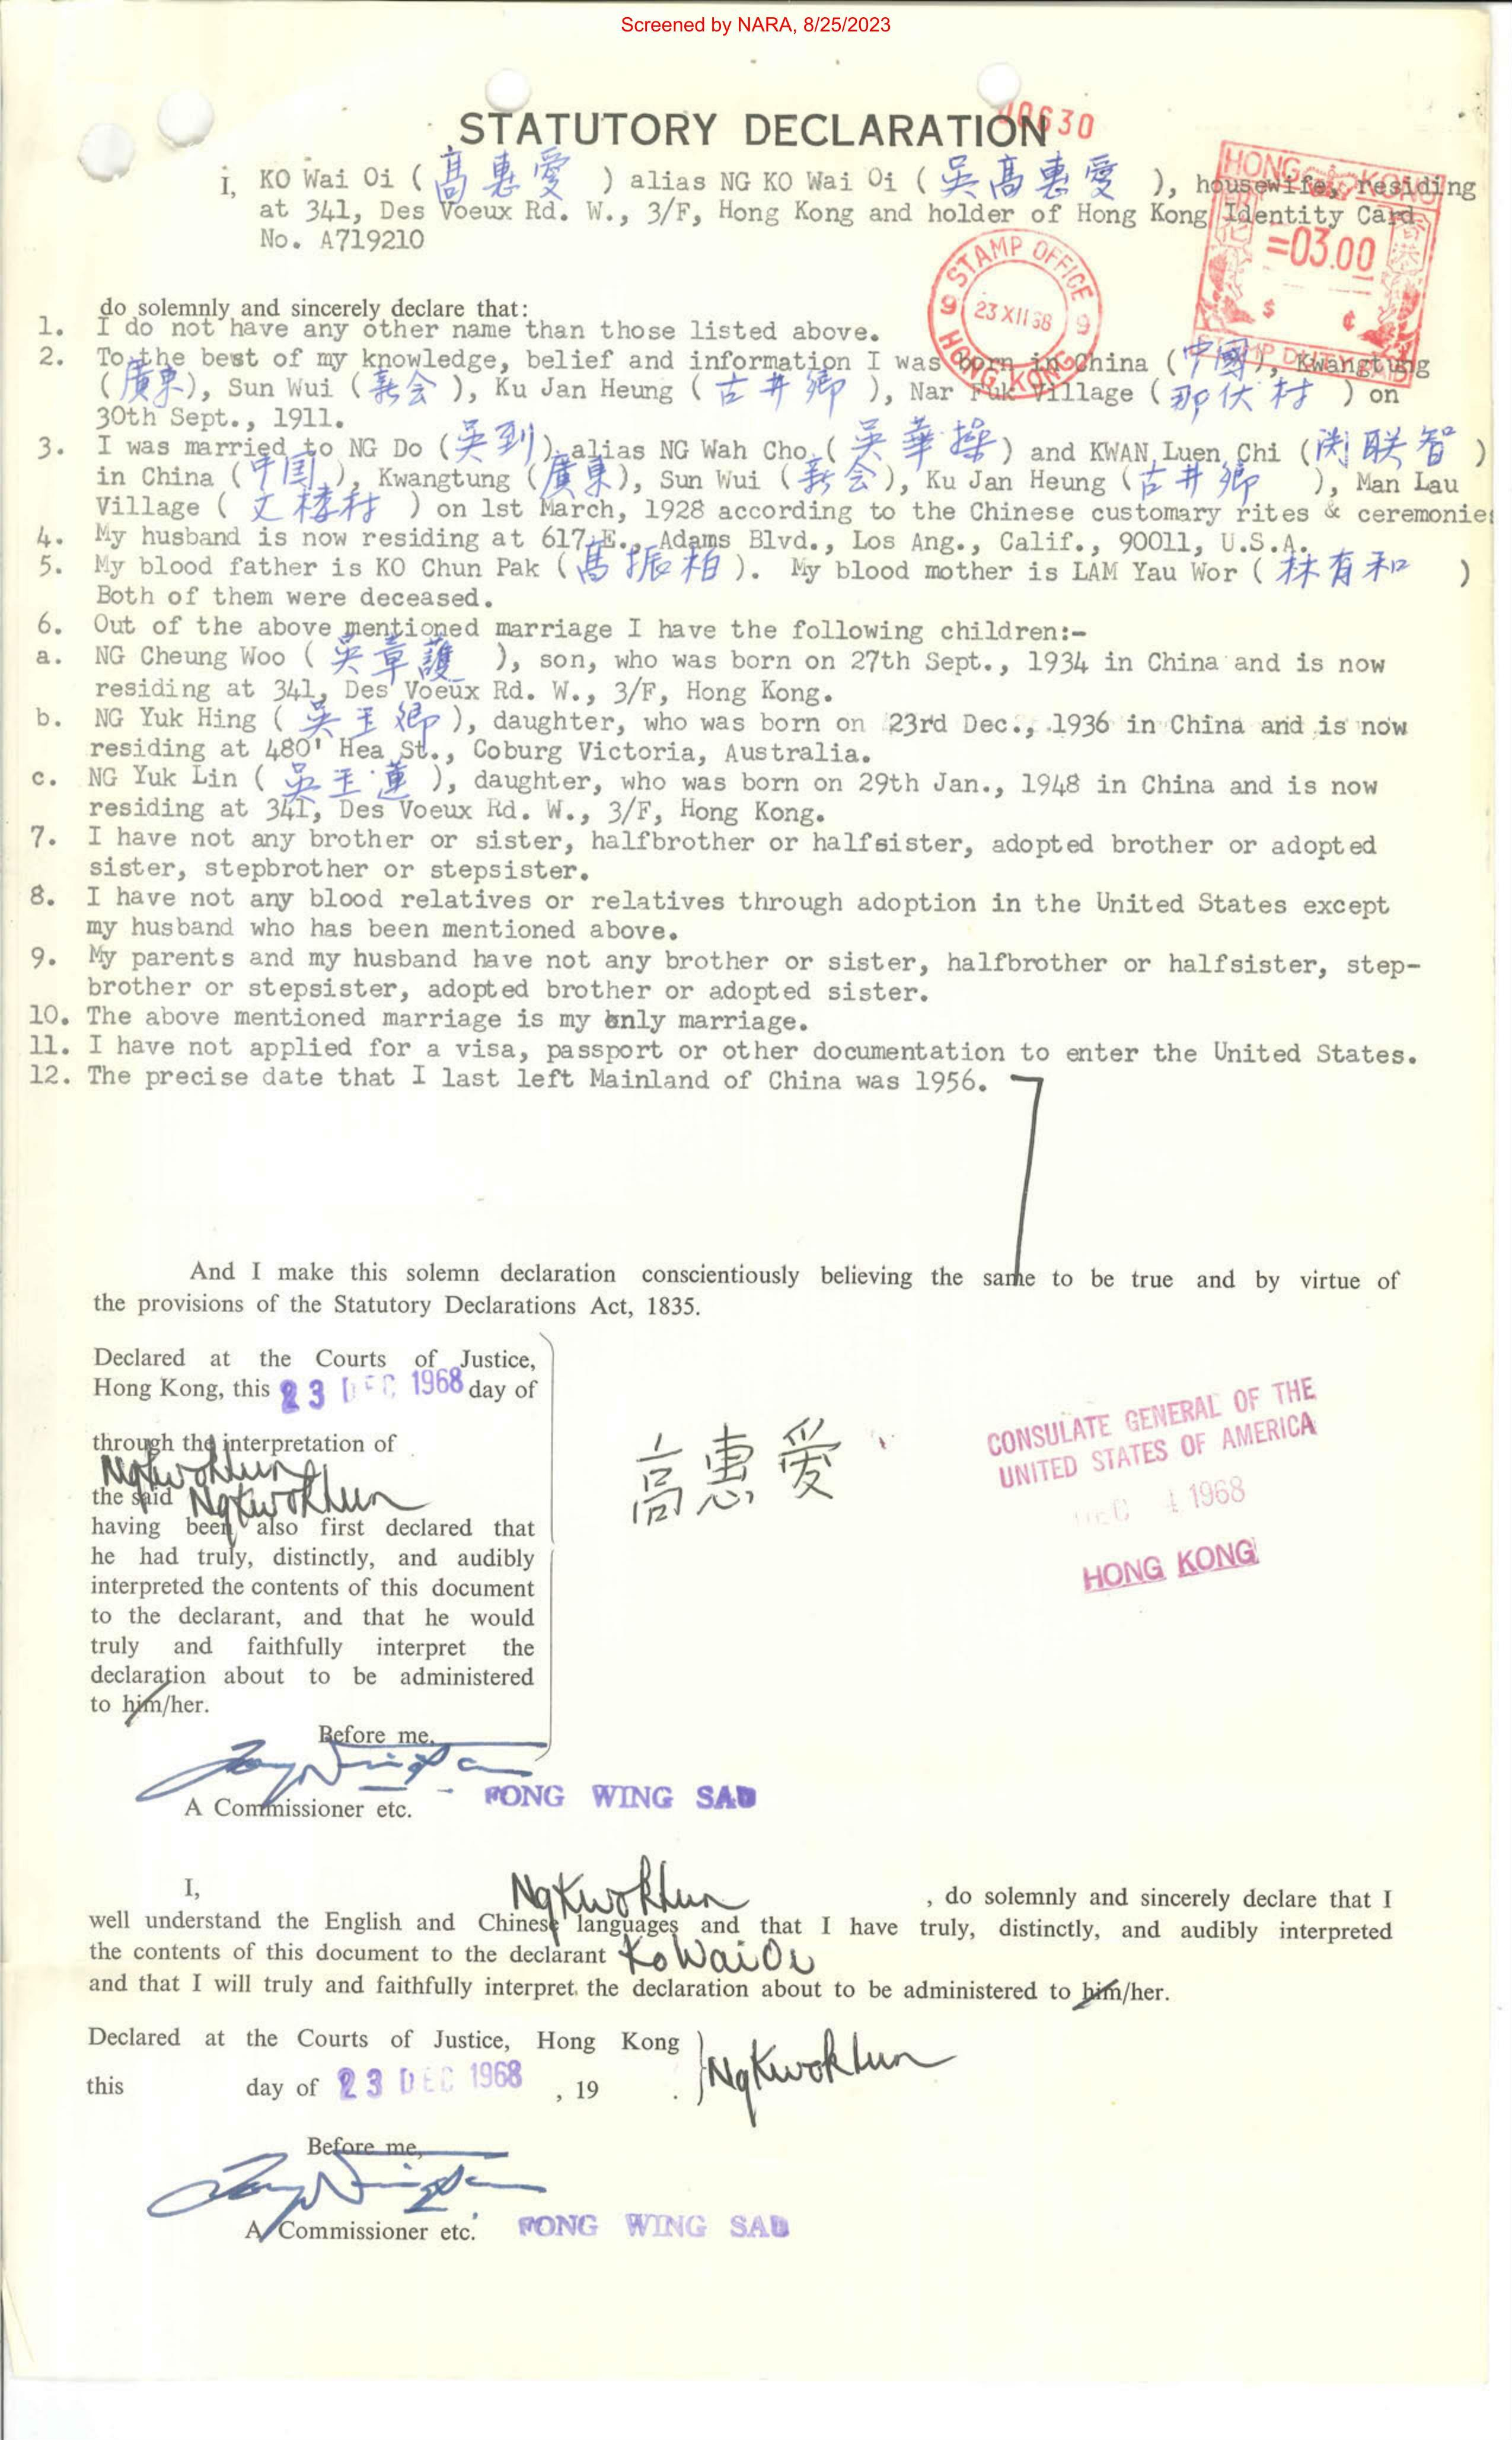 Screened by NARA, 8/25/2023
STATUTORY DECLARATION
630
I, KO Wai Oi ( 高惠愛 ) alias NG KO Wai Oi ( 吳高惠愛 ), housewife, residing
at 341, Des Voeux Rd. W., 3/F, Hong Kong and holder of Hong Kong Identity Card
No. A719210
HONG KONG
=03.00
$ ¢
STAMP DUTY PAID
STAMP OFFICE
9 23 XII 68 9
HONG KONG
do solemnly and sincerely declare that:
1. I do not have any other name than those listed above.
2. To the best of my knowledge, belief and information I was born in China ( 中國 ), Kwangtung
( 廣東 ), Sun Wui ( 新会 ), Ku Jan Heung ( 古井鄉 ), Nar Fuk Village ( 那伏村 ) on
30th Sept., 1911.
3. I was married to NG Do ( 吳到 ) alias NG Wah Cho ( 吳華操 ) and KWAN Luen Chi ( 関联智 )
in China ( 中国 ), Kwangtung ( 廣東 ), Sun Wui ( 新会 ), Ku Jan Heung ( 古井鄉 ), Man Lau
Village ( 文楼村 ) on 1st March, 1928 according to the Chinese customary rites & ceremonies
4. My husband is now residing at 617 E., Adams Blvd., Los Ang., Calif., 90011, U.S.A.
5. My blood father is KO Chun Pak ( 高振柏 ). My blood mother is LAM Yau Wor ( 林有和 )
Both of them were deceased.
6. Out of the above mentioned marriage I have the following children:-
a. NG Cheung Woo ( 吳章護 ), son, who was born on 27th Sept., 1934 in China and is now
residing at 341, Des Voeux Rd. W., 3/F, Hong Kong.
b. NG Yuk Hing ( 吳玉卿 ), daughter, who was born on 23rd Dec., 1936 in China and is now
residing at 480' Hea St., Coburg Victoria, Australia.
c. NG Yuk Lin ( 吳玉蓮 ), daughter, who was born on 29th Jan., 1948 in China and is now
residing at 341, Des Voeux Rd. W., 3/F, Hong Kong.
7. I have not any brother or sister, halfbrother or halfsister, adopted brother or adopted
sister, stepbrother or stepsister.
8. I have not any blood relatives or relatives through adoption in the United States except
my husband who has been mentioned above.
9. My parents and my husband have not any brother or sister, halfbrother or halfsister, step-
brother or stepsister, adopted brother or adopted sister.
10. The above mentioned marriage is my only marriage.
11. I have not applied for a visa, passport or other documentation to enter the United States.
12. The precise date that I last left Mainland of China was 1956.
And I make this solemn declaration conscientiously believing the same to be true and by virtue of
the provisions of the Statutory Declarations Act, 1835.
Declared at the Courts of Justice,
Hong Kong, this 23 DEC 1968 day of
through the interpretation of
Ng Kwok Lun
the said Ng Kwok Lun
having been also first declared that
he had truly, distinctly, and audibly
interpreted the contents of this document
to the declarant, and that he would
truly and faithfully interpret the
declaration about to be administered
to him/her.
高惠爱
CONSULATE GENERAL OF THE
UNITED STATES OF AMERICA
DEC 4 1968
HONG KONG
Before me,
A Commissioner etc. FONG WING SAU
I, Ng Kwok Lun , do solemnly and sincerely declare that I
well understand the English and Chinese languages and that I have truly, distinctly, and audibly interpreted
the contents of this document to the declarant Ko Wai Oi
and that I will truly and faithfully interpret the declaration about to be administered to him/her.
Declared at the Courts of Justice, Hong Kong
this day of 23 DEC 1968 , 19 .
Ng Kwok Lun
Before me,
A Commissioner etc. FONG WING SAU